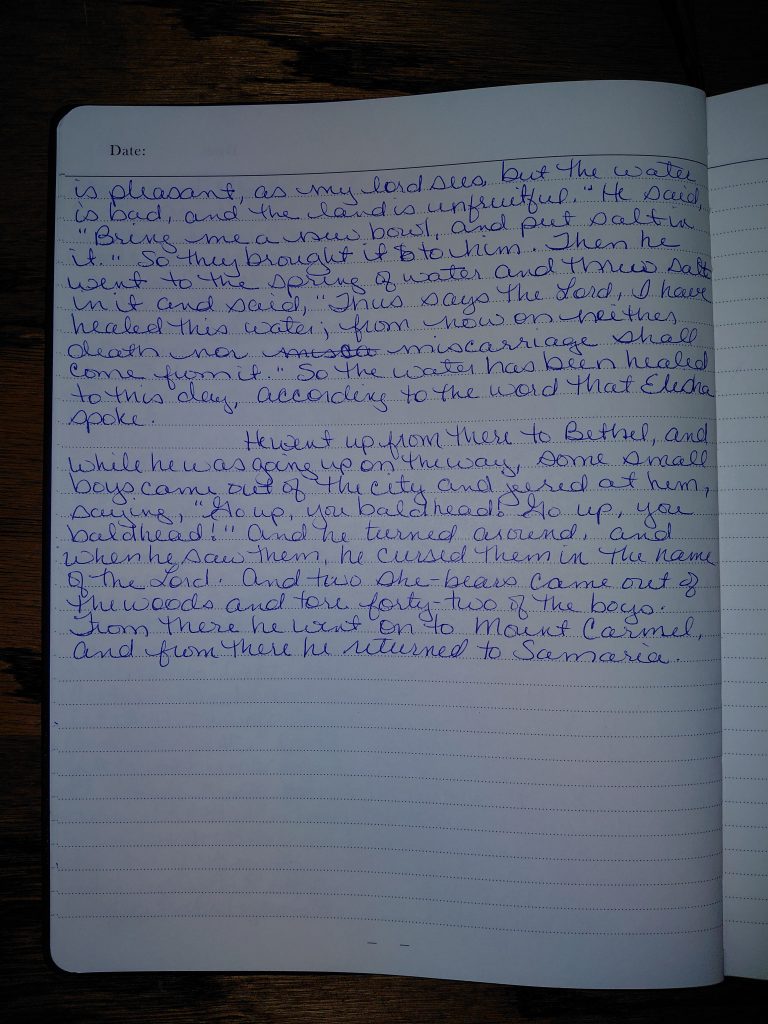 Date:
is pleasant, as my lord sees, but the water
is bad, and the land is unfruitful." He said,
"Bring me a new bowl, and put salt in
it." So they brought it to him. Then he
went to the spring of water and threw salt
in it and said, "Thus says the Lord, I have
healed this water; from now on neither
death nor misca miscarriage shall
come from it." So the water has been healed
to this day, according to the word that Elisha
spoke.
He went up from there to Bethel, and
while he was going up on the way, some small
boys came out of the city and jeered at him,
saying, "Go up, you baldhead! Go up, you
baldhead!" And he turned around, and
when he saw them, he cursed them in the name
of the Lord. And two she-bears came out of
the woods and tore forty-two of the boys.
From there he went on to Mount Carmel,
and from there he returned to Samaria.